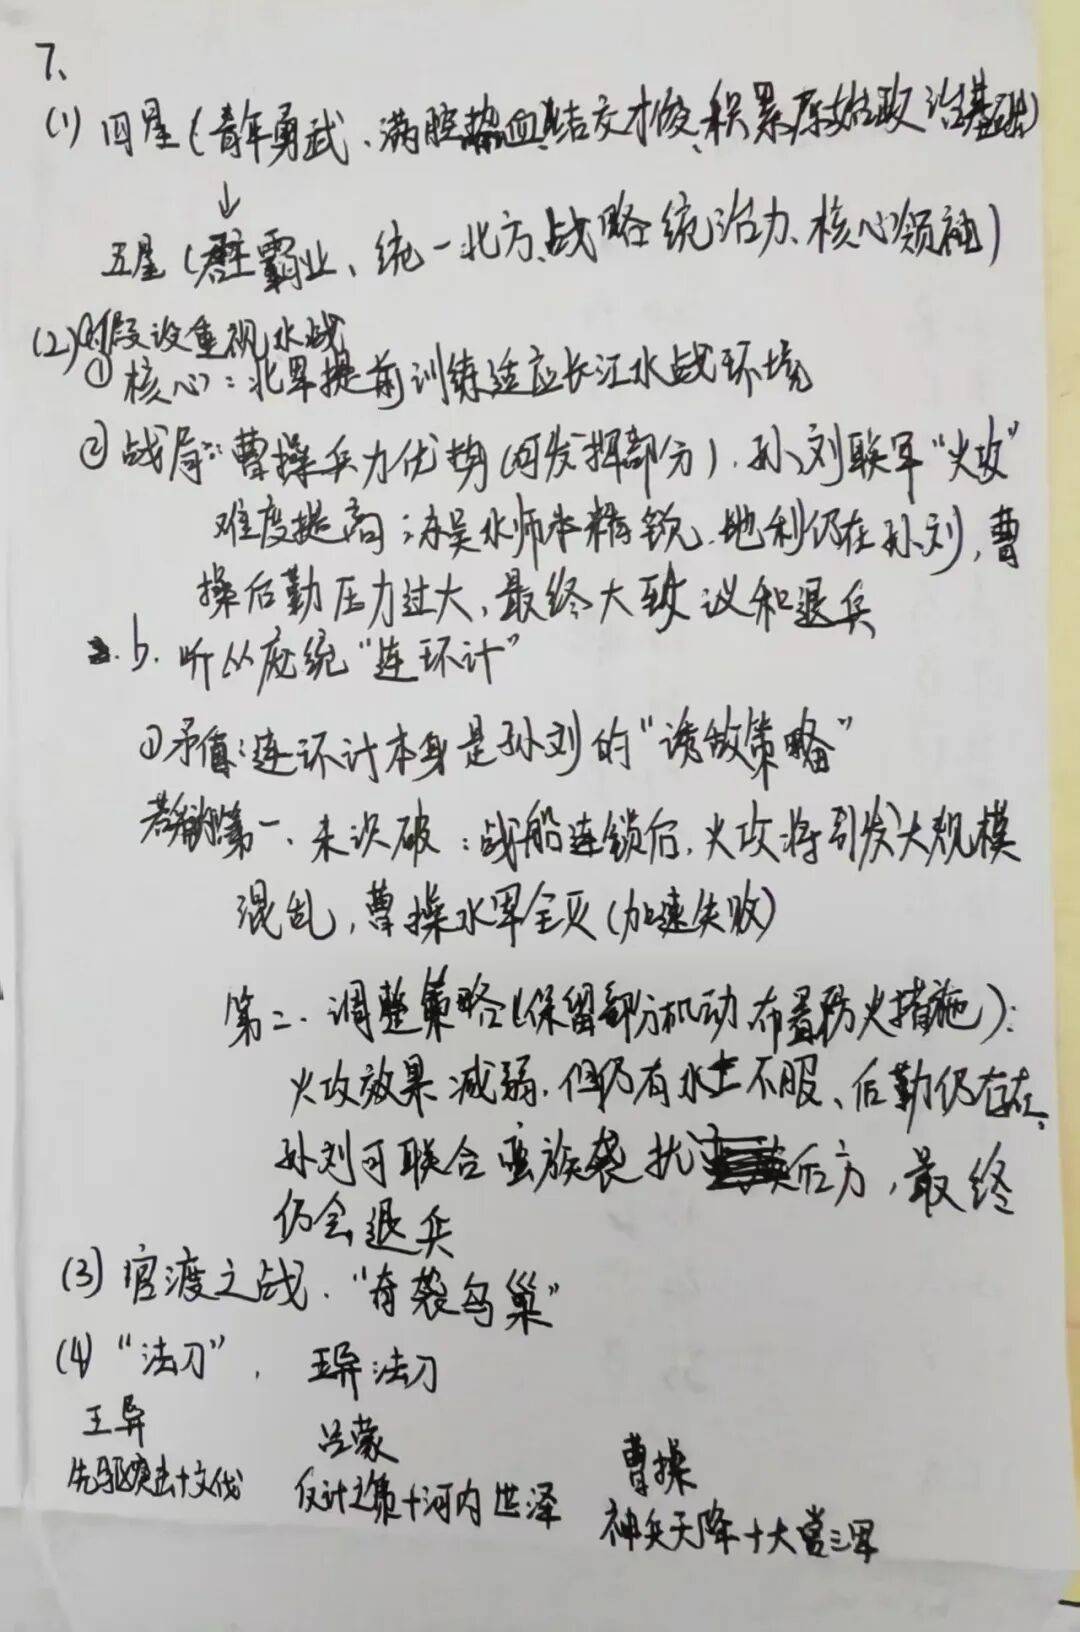 7、
(1) 四星(青年勇武、满腔热血、结交才俊、积累原始政治基础)
↓
五星(君主霸业、统一北方、战略统治力、核心领袖)
(2) 假设重视水战
① 核心:北军提前训练适应长江水战环境
② 战局:曹操兵力优势(可发挥部分),孙刘联军“火攻”
难度提高;东吴水师本精锐,地利仍在孙刘,曹
操后勤压力过大,最终大致议和退兵
b.听从庞统“连环计”
①矛盾:连环计本身是孙刘的“诱敌策略”
第一、未识破:战船连锁后,火攻将引发大规模
混乱,曹操水军全灭(加速失败)
第二、调整策略(保留部分机动 布置防火措施):
火攻效果减弱,但仍有水土不服、后勤仍存在,
孙刘可联合蛮族袭扰后方,最终
仍会退兵
(3) 官渡之战,“奇袭乌巢”
(4) “法刀”, 王异法刀
王异 吕蒙 曹操
先驱突击+文伐 反计之策+河内世泽 神兵天降+大赏三军